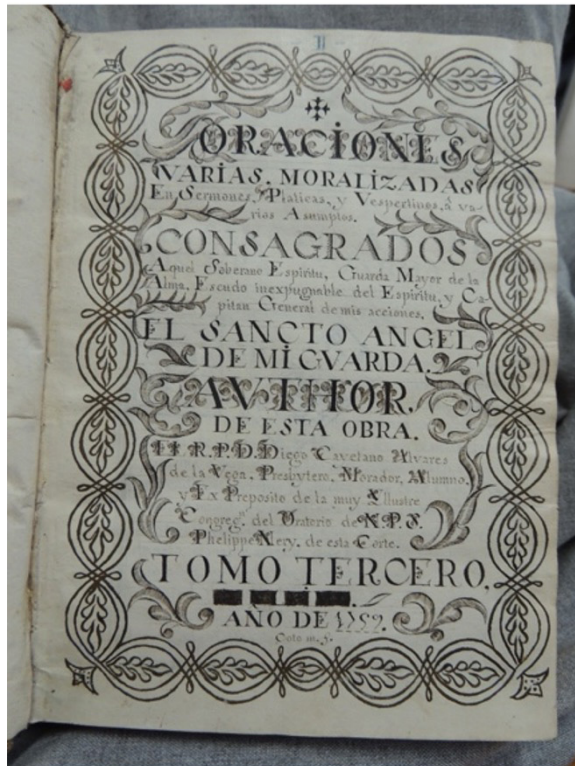 II
ORACIONES
VARIAS, MORALIZADAS
En Sermones, Platicas, y Vespertinos, â va-
rios Asumptos.
CONSAGRADOS
Aquel Soberano Espiritu, Guarda Mayor de la
Alma, Escudo inexpugnable del Espiritu, y Ca-
pitan General de mis acciones.
EL SANCTO ANGEL
DE MI GVARDA.
AVTHOR
DE ESTA OBRA.
El R.P.D. Diego Cayetano Alvares
de la Vega, Presbytero, Morador, Alumno,
y Ex Preposito de la muy Yllustre
Congreg.n del Oratorio de N.P.S.
Phelippe Nery, de esta Corte.
TOMO TERCERO.
AÑO DE